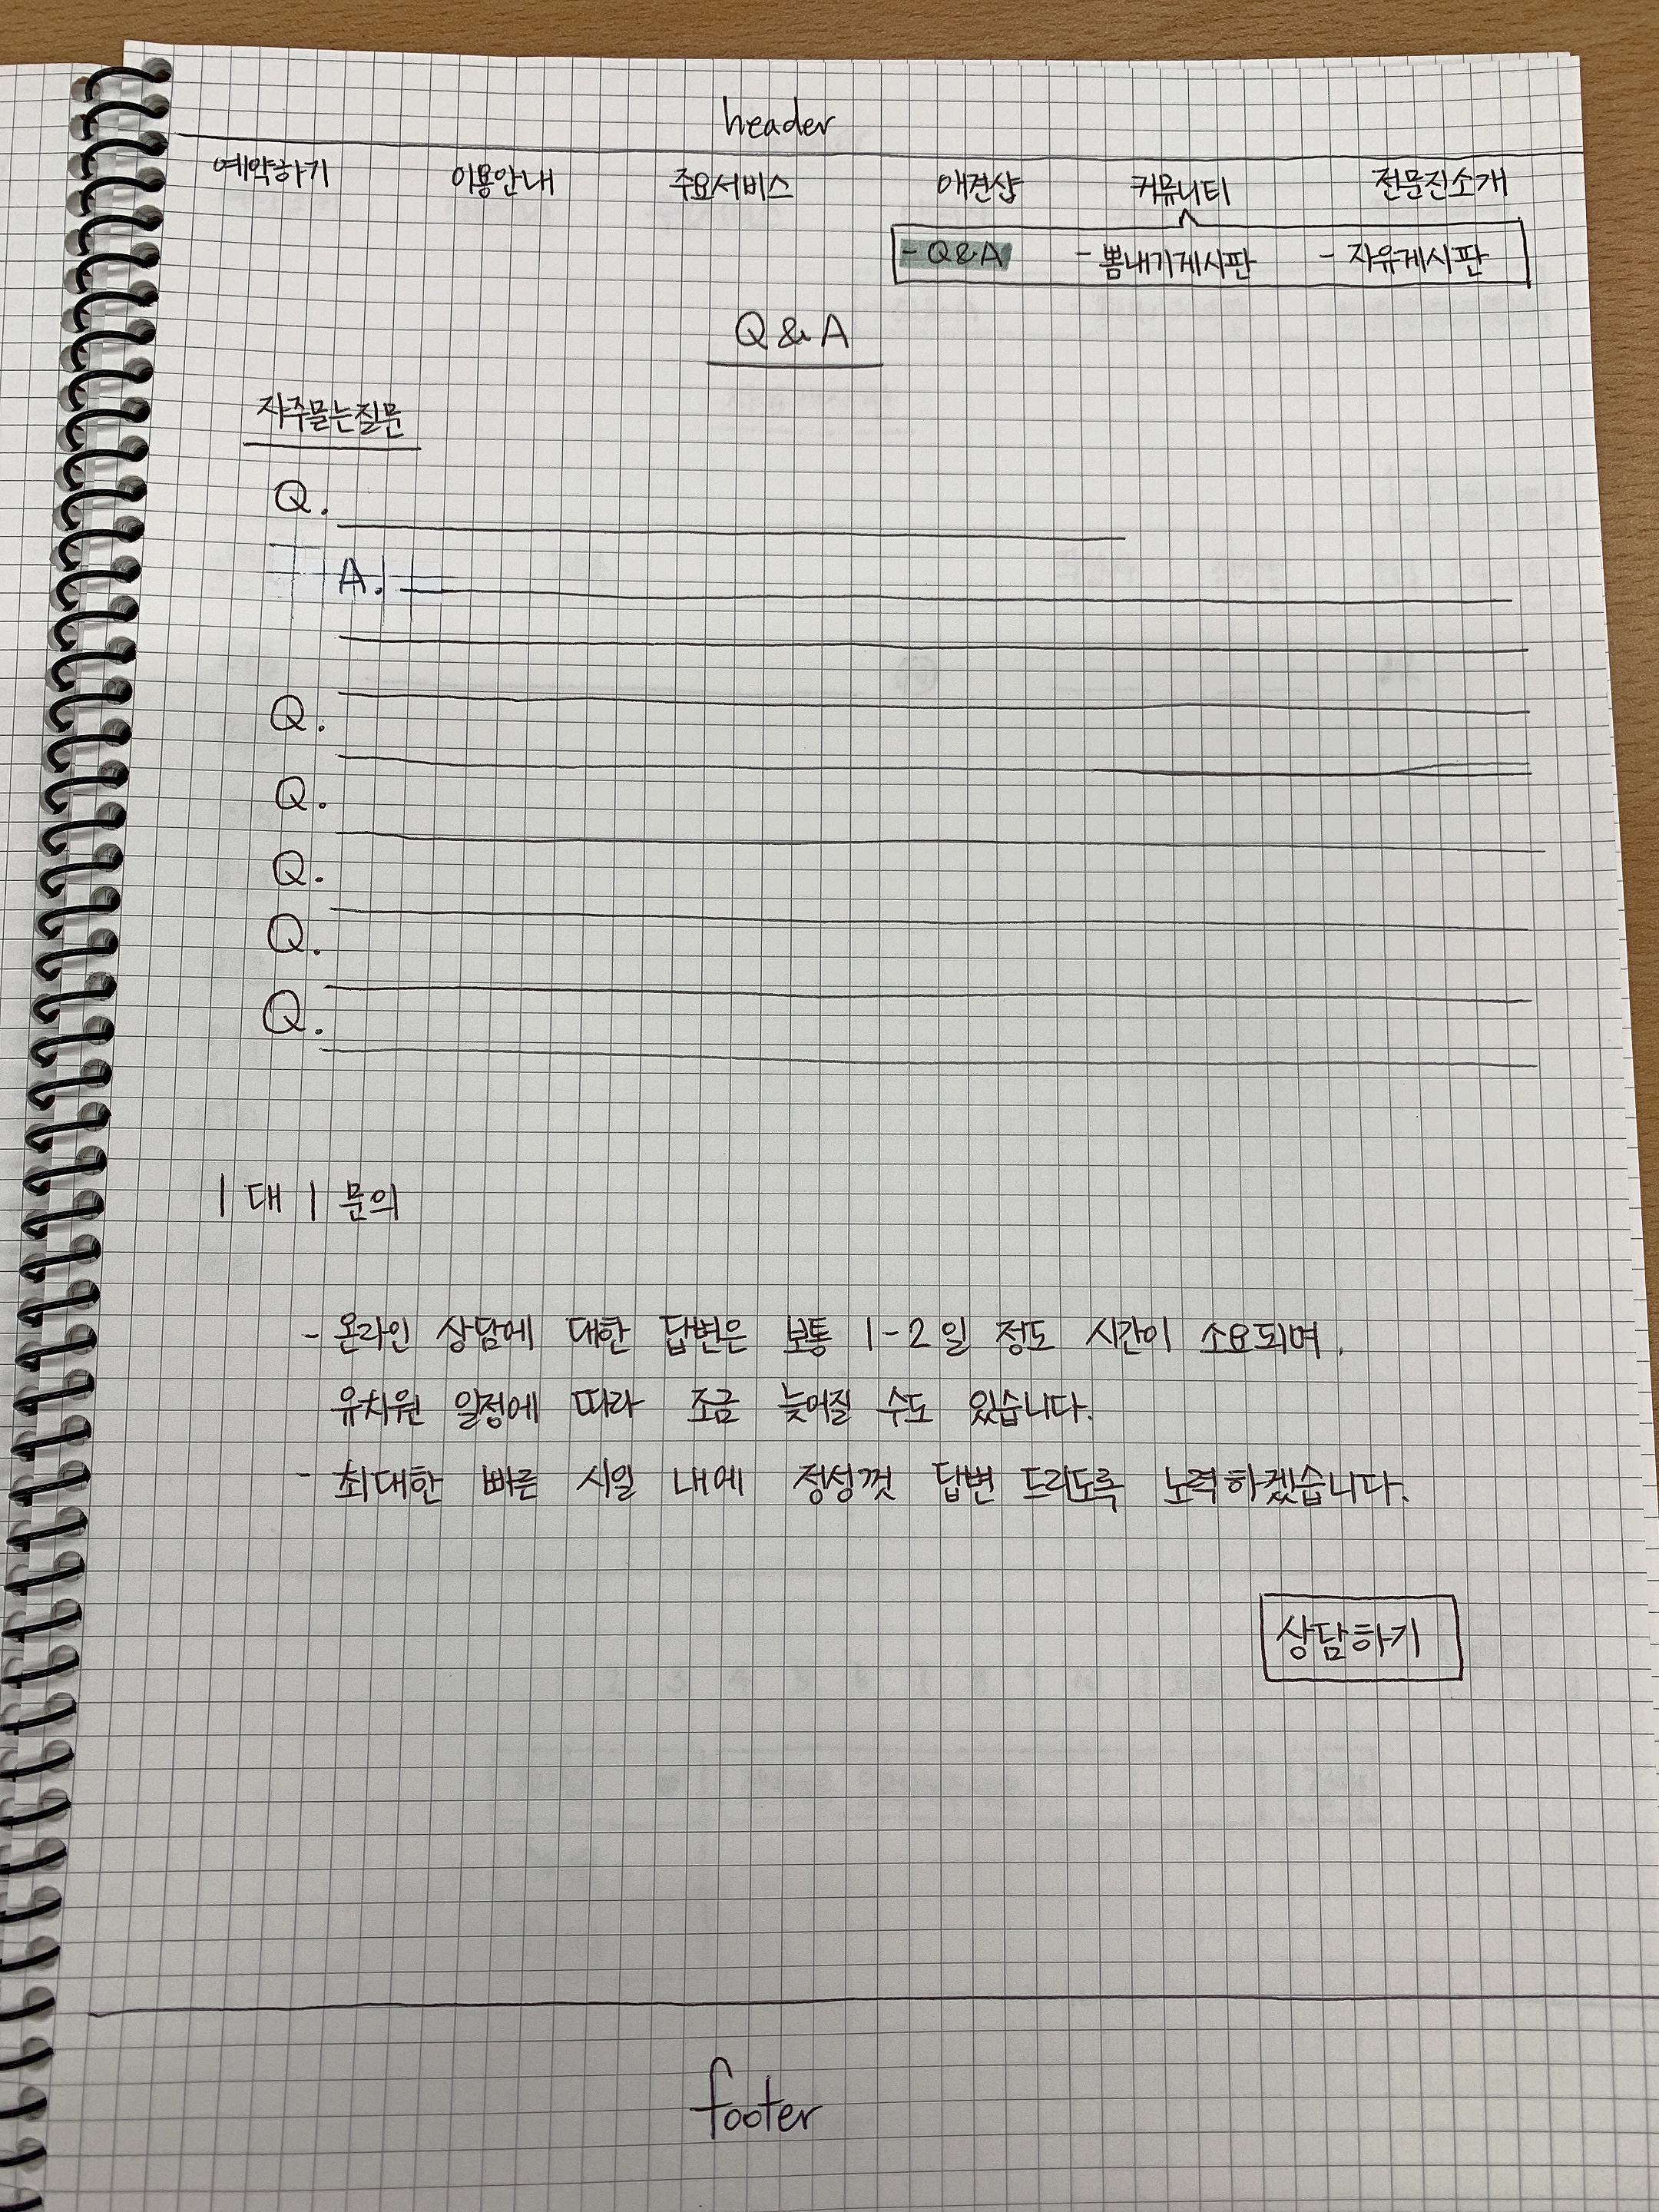 header
예약하기 이용안내 주요서비스 애견샵 커뮤니티 전문진소개
- Q&A - 뽐내기게시판 - 자유게시판
Q & A
자주묻는질문
Q.
A.
Q.
Q.
Q.
Q.
Q.
1 대 1 문의
- 온라인 상담에 대한 답변은 보통 1-2일 정도 시간이 소요되며,
유치원 일정에 따라 조금 늦어질 수도 있습니다.
- 최대한 빠른 시일 내에 정성껏 답변 드리도록 노력하겠습니다.
상담하기
footer